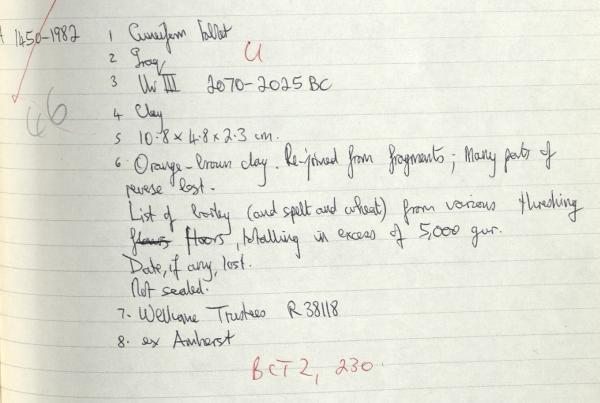 A 1450-1982 1 Cuneiform Tablet
2 Iraq U
3 Ur III 2070-2025 BC
46 4 Clay
5 10.8 x 4.8 x 2.3 cm.
6. Orange-brown clay. Re-joined from fragments; Many parts of
reverse lost.
List of barley (and spelt and wheat) from various threshing
floors, totalling in excess of 5,000 gur.
Date, if any, lost.
Not sealed.
7. Wellcome Trustees R 38118
8. ex Amherst
BCT 2, 230.